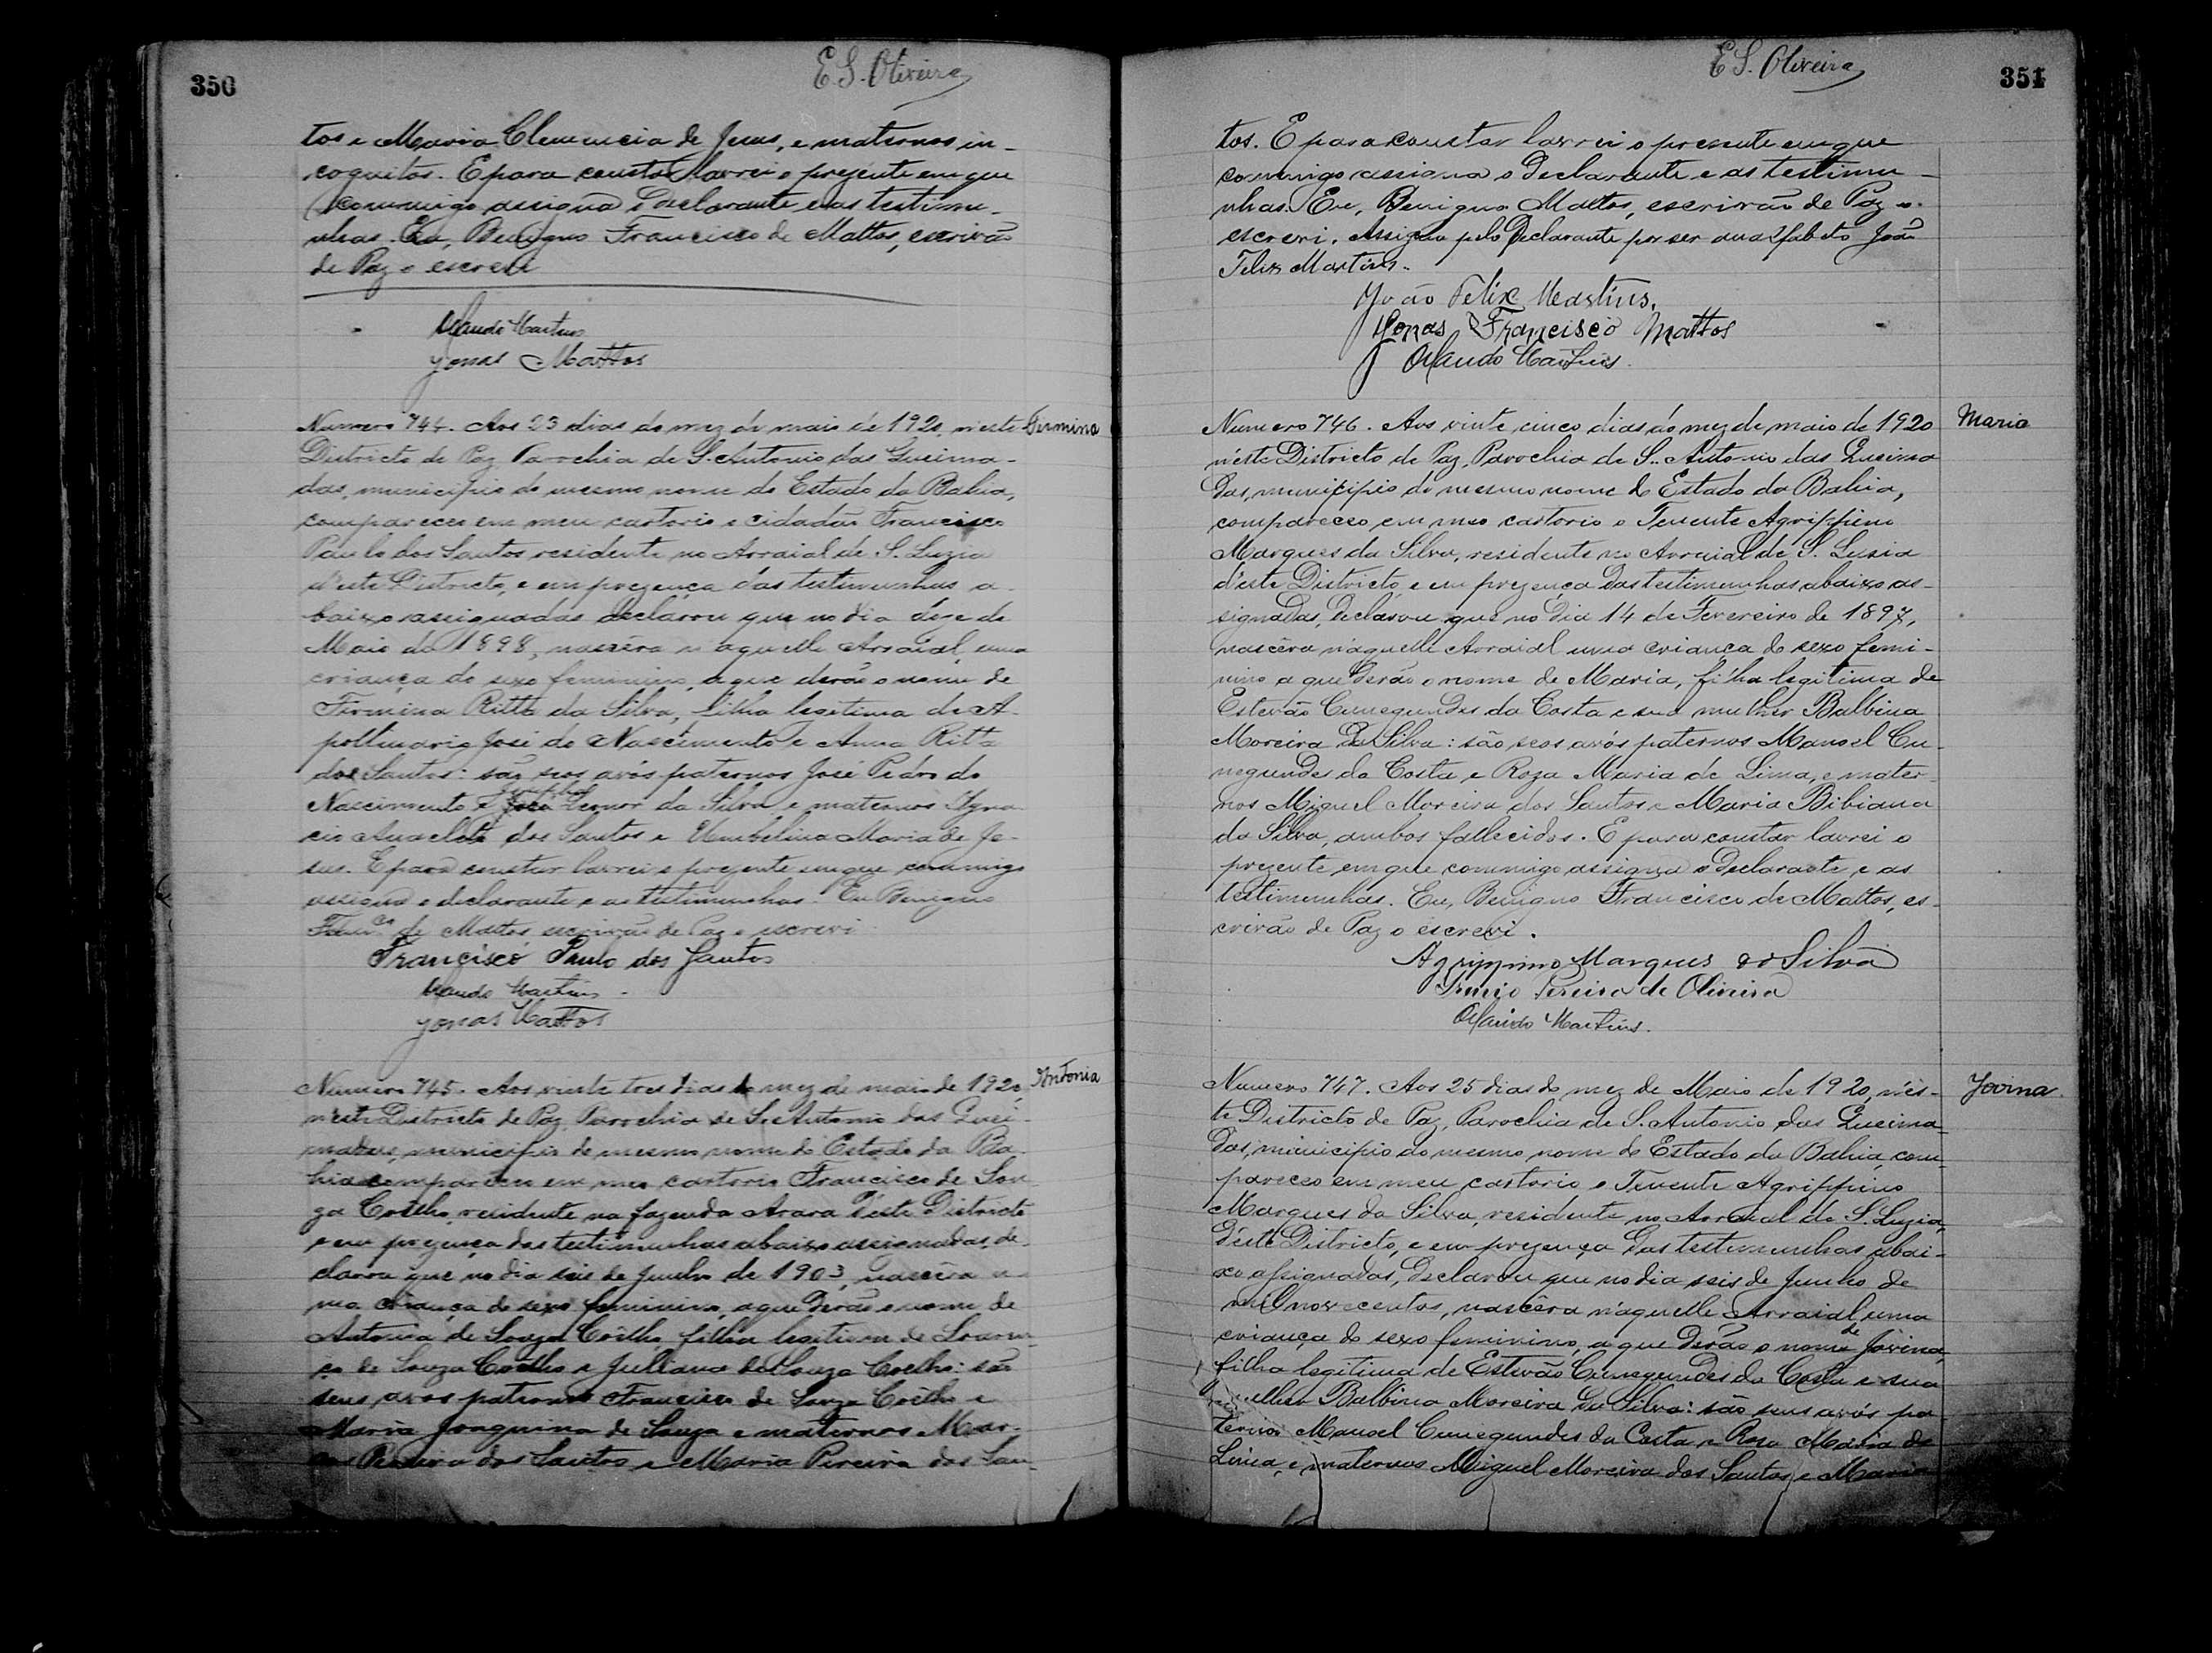 350
E. S. Oliveira
tos e Maria Clemencia de Jesus, e maternos in-
cognitos. E para constar lavrei o prezente em que
commigo assigna o declarante e as testimu-
nhas. Eu, Benigno Francisco de Mattos, escrivão
de Paz o escrevi
Orlando Martins
Jonas Mattos
Firmina
Numero 744. Aos 23 dias do mez de maio de 1920, n'este
Districto de Paz, Parochia de S. Antonio das Queima-
das, municipio do mesmo nome do Estado da Bahia,
compareceo em meu cartorio o cidadão Francisco
Paulo dos Santos residente no Arraial de S. Luzia
d'este Districto, e em prezença das testimunhas a-
baixo assignadas declarou que no dia de
Maio de 1898, nascêra n'aquelle Arraial, uma
criança do sexo feminino, a que derão o nome de
Firmina Ritta da Silva, filha legitima de A-
pollinario José do Nascimento e Anna Ritta
dos Santos: são seos avós paternos José Pedro do
Nascimento e da Silva, e maternos Igna-
cio Anacleto dos Santos e Umbelina Maria de Je-
sus. E para constar lavrei o prezente em que commigo
assigna o declarante e as testimunhas. Eu Benigno
Franco de Mattos escrivão de Paz o escrevi
Francisco Paulo dos Santos
Orlando Martins
Jonas Mattos
Antonia
Numero 745. Aos vinte tres dias do mez de maio de 1920,
n'este Districto de Paz, Parochia de S. Antonio das Quei-
madas, municipio do mesmo nome do Estado da Ba-
hia compareceu em meu cartorio Francisco de Sou-
za Coêlho, residente na fazenda Arara d'este Districto
e em prezença das testimunhas abaixo assignadas, de-
clarou que no dia seis de Junho de 1903, nascêra u-
ma criança do sexo feminino, a que derão o nome de
Antonia de Souza Coêlho, filha legitima de
de Souza Coelho e Julliana de Souza Coelho: são
seus avós paternos Francisco de Souza Coêlho e
Maria Joaquina de Souza e maternos Mar-
Pereira dos Santos e Maria Pereira dos San-
351
E. S. Oliveira
tos. E para constar lavrei o prezente em que
commigo assigna o Declarante e as testimu-
nhas. Eu, Benigno Mattos, escrivão de Paz o
escrevi. Assigna pelo Declarante por ser analfabeto João
Felix Martins.
João Felix Martins.
Jonas Francisco Mattos
Orlando Martins.
Maria
Numero 746. Aos vinte cinco dias do mez de maio de 1920
n'este Districto de Paz, Parochia de S. Antonio das Queima
das, municipio do mesmo nome do Estado da Bahia,
compareceo em meo cartorio o Tenente Agrippino
Marques da Silva, residente no Arraial de S. Lusia
d'este Districto, e em prezença das testimunhas abaixo as-
signadas, Declarou que no Dia 14 de Fevereiro de 1897,
nascêra n'aquelle Arraial uma criança do sexo femi-
nino a que derão o nome de Maria, filha legitima de
Estevão Cunegundes da Costa e sua mulher Balbina
Moreira da Silva: são seos avós paternos Manoel Cu-
negundes da Costa e Roza Maria de Lima, e mater-
nos Miguel Moreira dos Santos e Maria Bibiana
da Silva, ambos fallecidos. E para constar lavrei o
prezente em que commigo assigna o Declarante e as
testimunhas. Eu, Benigno Francisco de Mattos, es-
crivão de Paz o escrevi.
Agrippino Marques da Silva
Pereira de Oliveira
Orlando Martins.
Jovina
Numero 747. Aos 25 dias do mez de Maio de 1920, n'es-
te Districto de Paz, Parochia de S. Antonio das Queima-
das, municipio do mesmo nome do Estado da Bahia, com-
pareceo em meu cartorio o Tenente Agrippino
Marques da Silva, residente no Arraial de S. Luzia,
d'este Districto, e em prezença das testimunhas abai-
xo assignadas, Declarou que no dia seis de Junho de
mil novecentos, nascêra n'aquelle Arraial uma
criança do sexo feminino, a que Derão o nome de Jovina,
filha legitima de Estevão Cunegundes da Costa e sua
mulher Balbina Moreira da Silva: são seus avós pa-
ternos Manoel Cunegundes da Costa e Rosa Maria de
Lima, e maternos Miguel Moreira dos Santos e Maria